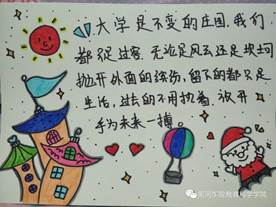 大学是不变的庄园,我们
都是过客,无论是风云还是坎坷
抛开外面的缤纷,留下的都只是
生活,过去的不用执着,放开
手为未来一搏